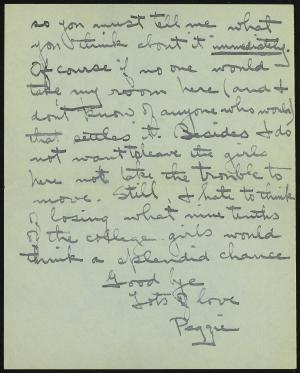 so you must tell me what
you think about it immediately.
Of course if no one would
take my room here (and I
don't know of anyone who would)
that settles it. Besides I do
not want to leave the girls
here nor take the trouble to
move. Still, I hate to think
of losing what nine tenths
of the college girls would
think a splendid chance
Good bye
Lots of love
Peggie